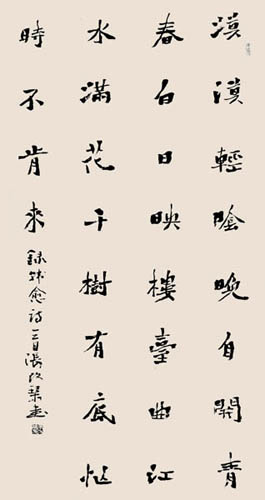 漠漠輕陰晚自開青
春白日映樓臺曲江
水滿花千樹有底忙
時不肯來
錄韓愈詩 張改琴書